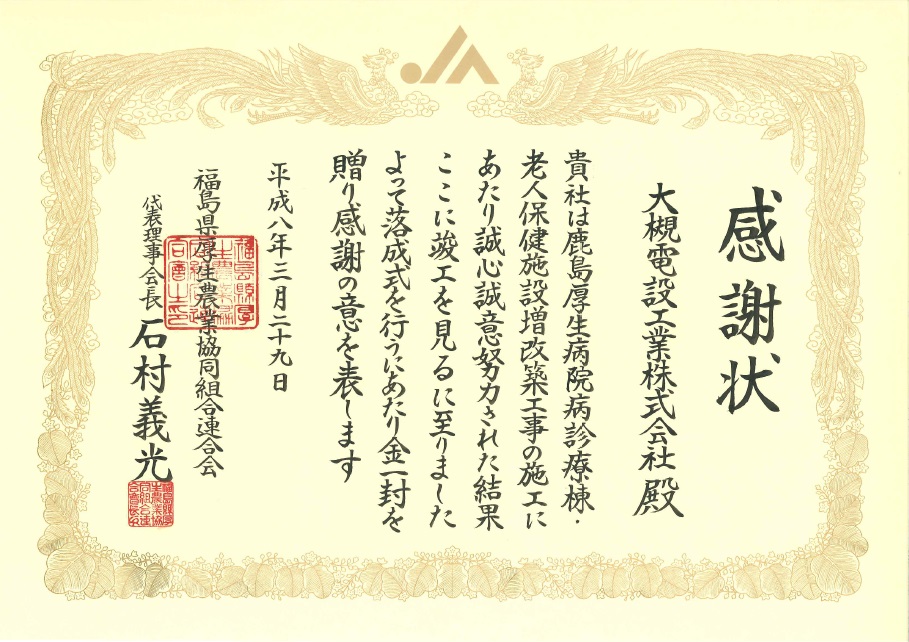 感謝状
大槻電設工業株式会社 殿
貴社は鹿島厚生病院病診療棟・
老人保健施設増改築工事の施工に
あたり誠心誠意努力された結果
ここに竣工を見るに至りました
よって落成式を行うにあたり金一封を
贈り感謝の意を表します
平成八年三月二十九日
福島県厚生農業協同組合連合会
代表理事会長 石村義光